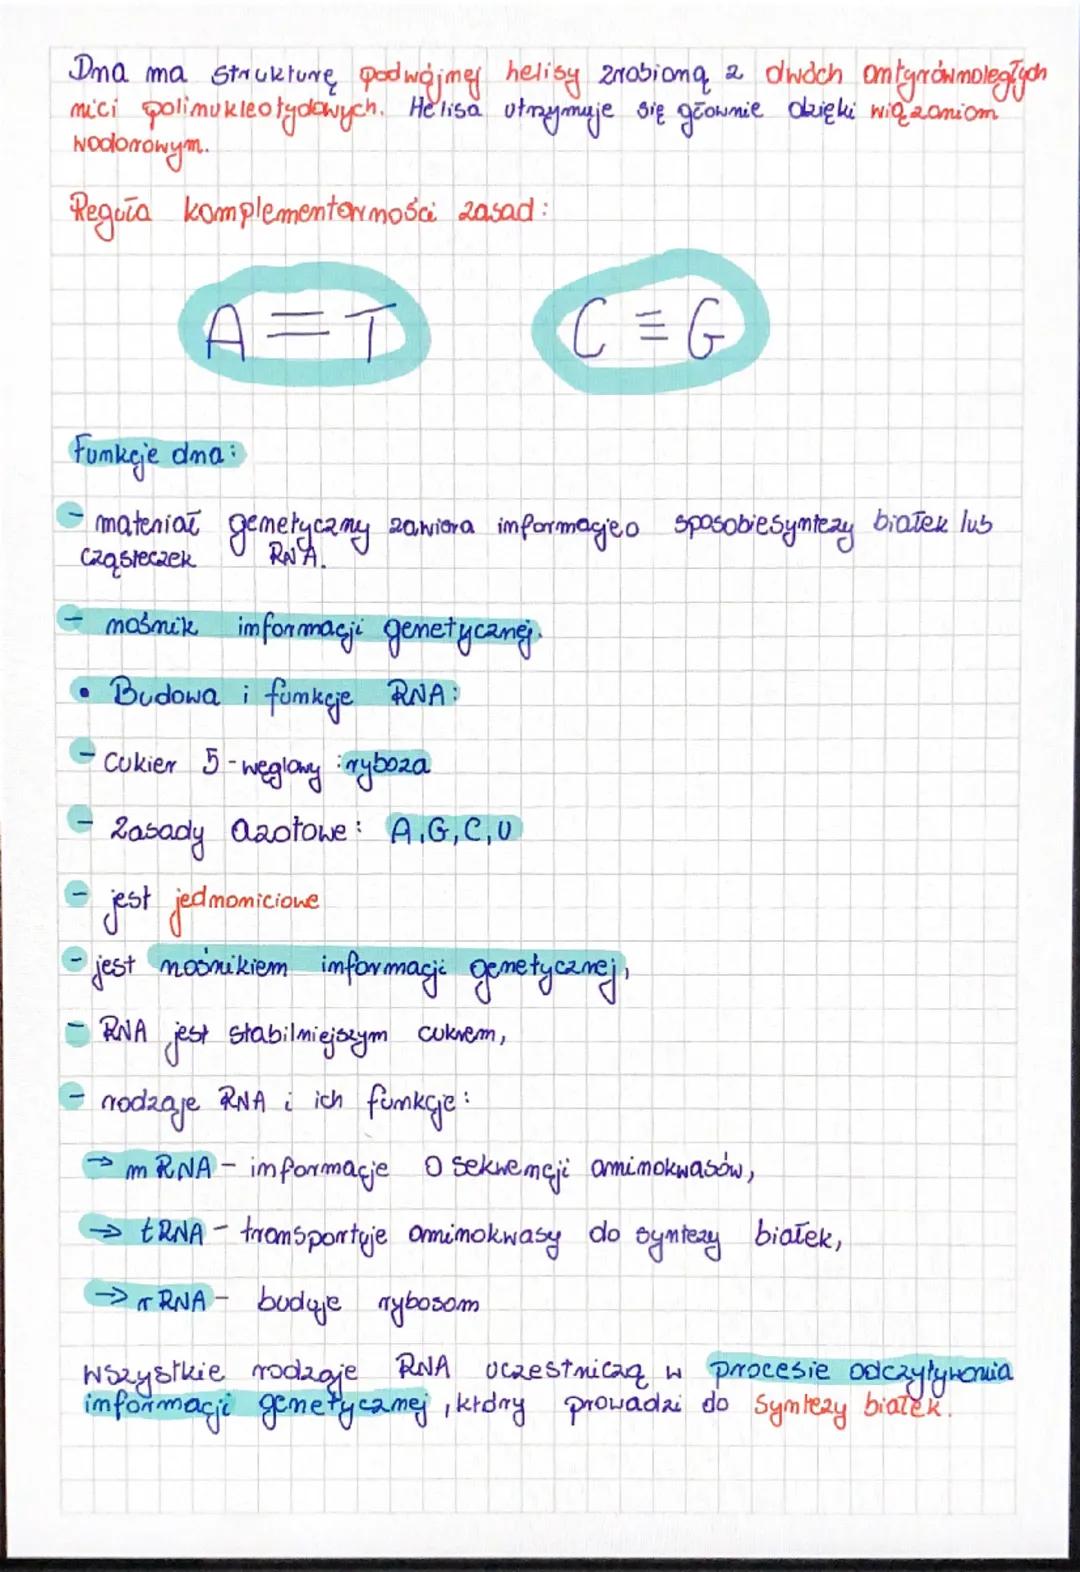 Dna ma strukturę podwójnej helisy zrobioną z dwóch antyrównoległych
nici polinukleotydowych. Helisa utrzymuje się głownie dzięki wiązaniom
wodorowym.
Reguła komplementarności zasad:
A = T C ≡ G
Funkcje dna:
- materiał genetyczny zawiera informacje o sposobie syntezy białek lub
cząsteczek RNA.
- nośnik informacji genetycznej.
• Budowa i funkcje RNA:
- Cukier 5-węglowy : ryboza
- Zasady azotowe: A, G, C, U
- jest jednoniciowe
- jest nośnikiem informacji genetycznej,
- RNA jest stabilniejszym cukrem,
- rodzaje RNA i ich funkcje:
→ mRNA - informacje o sekwencji aminokwasów,
→ tRNA - transportuje aminokwasy do syntezy białek,
→ rRNA - buduje rybosom
Wszystkie rodzaje RNA uczestniczą w procesie odczytywania
informacji genetycznej, który prowadzi do syntezy białek.